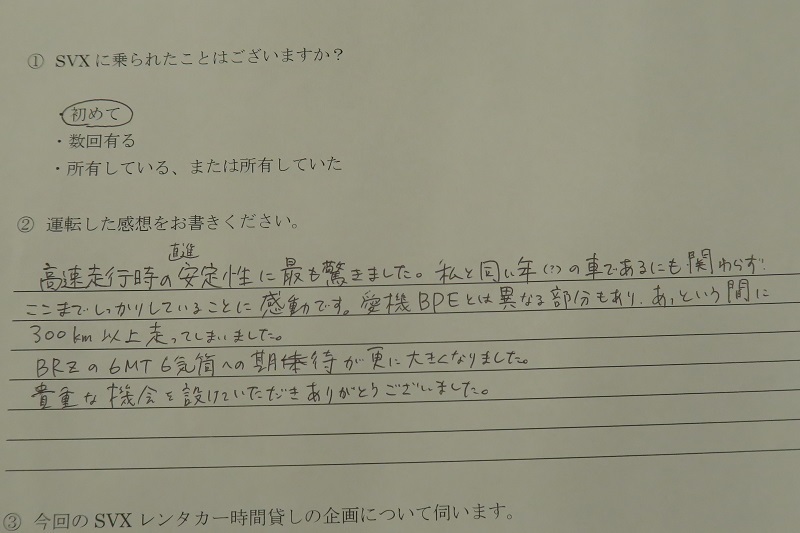 ① SVXに乗られたことはございますか？
・初めて
・数回有る
・所有している、または所有していた
② 運転した感想をお書きください。
高速走行時の直進安定性に最も驚きました。私と同い年(?)の車であるにも関わらず
ここまでしっかりしていることに感動です。愛機BPEとは異なる部分もあり、あっという間に
300km以上走ってしまいました。
BRZの6MT 6気筒への期待が更に大きくなりました。
貴重な機会を設けていただきありがとうございました。
③ 今回のSVXレンタカー時間貸しの企画について伺います。